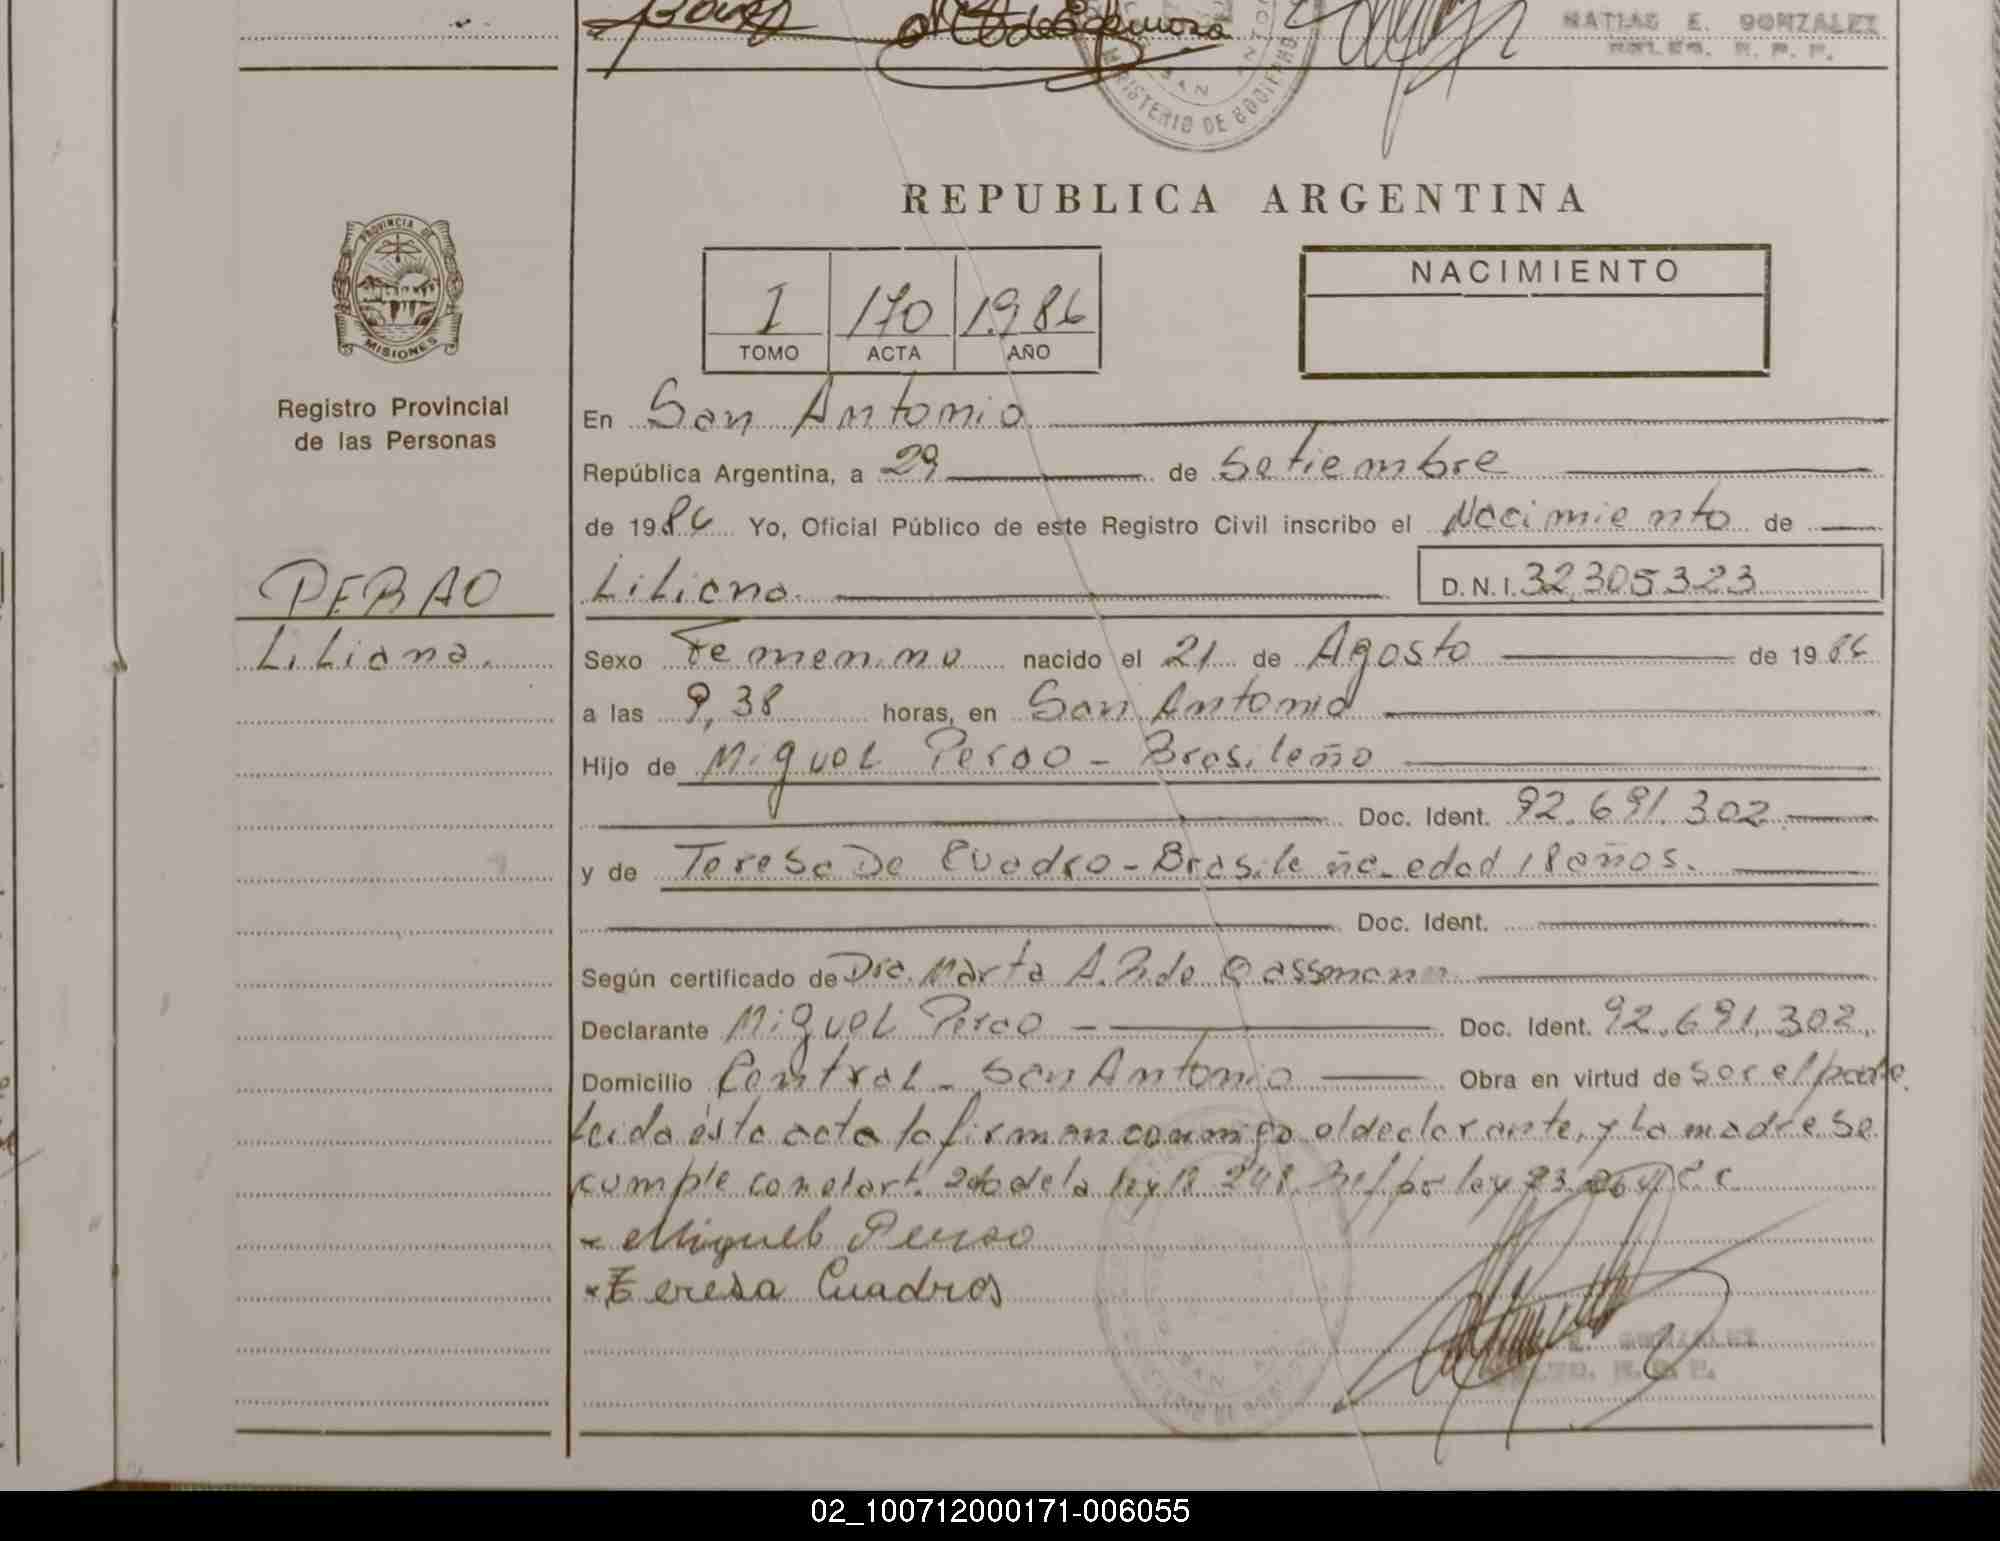 MATIAS E. GONZALEZ
R. P. P.
MINISTERIO DE GOBIERNO
REPUBLICA ARGENTINA
PROVINCIA DE
MISIONES
Registro Provincial
de las Personas
I 170 1986
TOMO ACTA AÑO
NACIMIENTO
En San Antonio
República Argentina, a 29 de Setiembre
de 1986 Yo, Oficial Público de este Registro Civil inscribo el Nacimiento de
PERAO
Liliana D.N.I. 32.305323
Liliana.
Sexo Femenino nacido el 21 de Agosto de 1986
a las 9,38 horas, en San Antonio
Hijo de Miguel Perao - Brasileño
Doc. Ident. 92.691.302
y de Teresa De Cuadro - Brasileña - edad 18 años.
Doc. Ident.
Según certificado de Dra. Marta A. P. de Gassmann
Declarante Miguel Perao - Doc. Ident. 92.691.302.
Domicilio Central - San Antonio Obra en virtud de ser el padre.
Leida ésta acta la firman conmigo el declarante, y la madre se
cumple con el art. de la ley 18.248 por ley 23.264
Miguel Perao
Teresa Cuadros
GONZALEZ
02_100712000171-006055